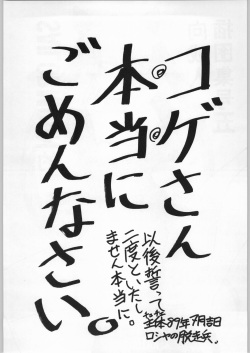 コゲさん
本当に
ごめんなさい。
以後誓って
二度といたし
ません本当に。
89年7月吉日
ロシヤの脱走兵。